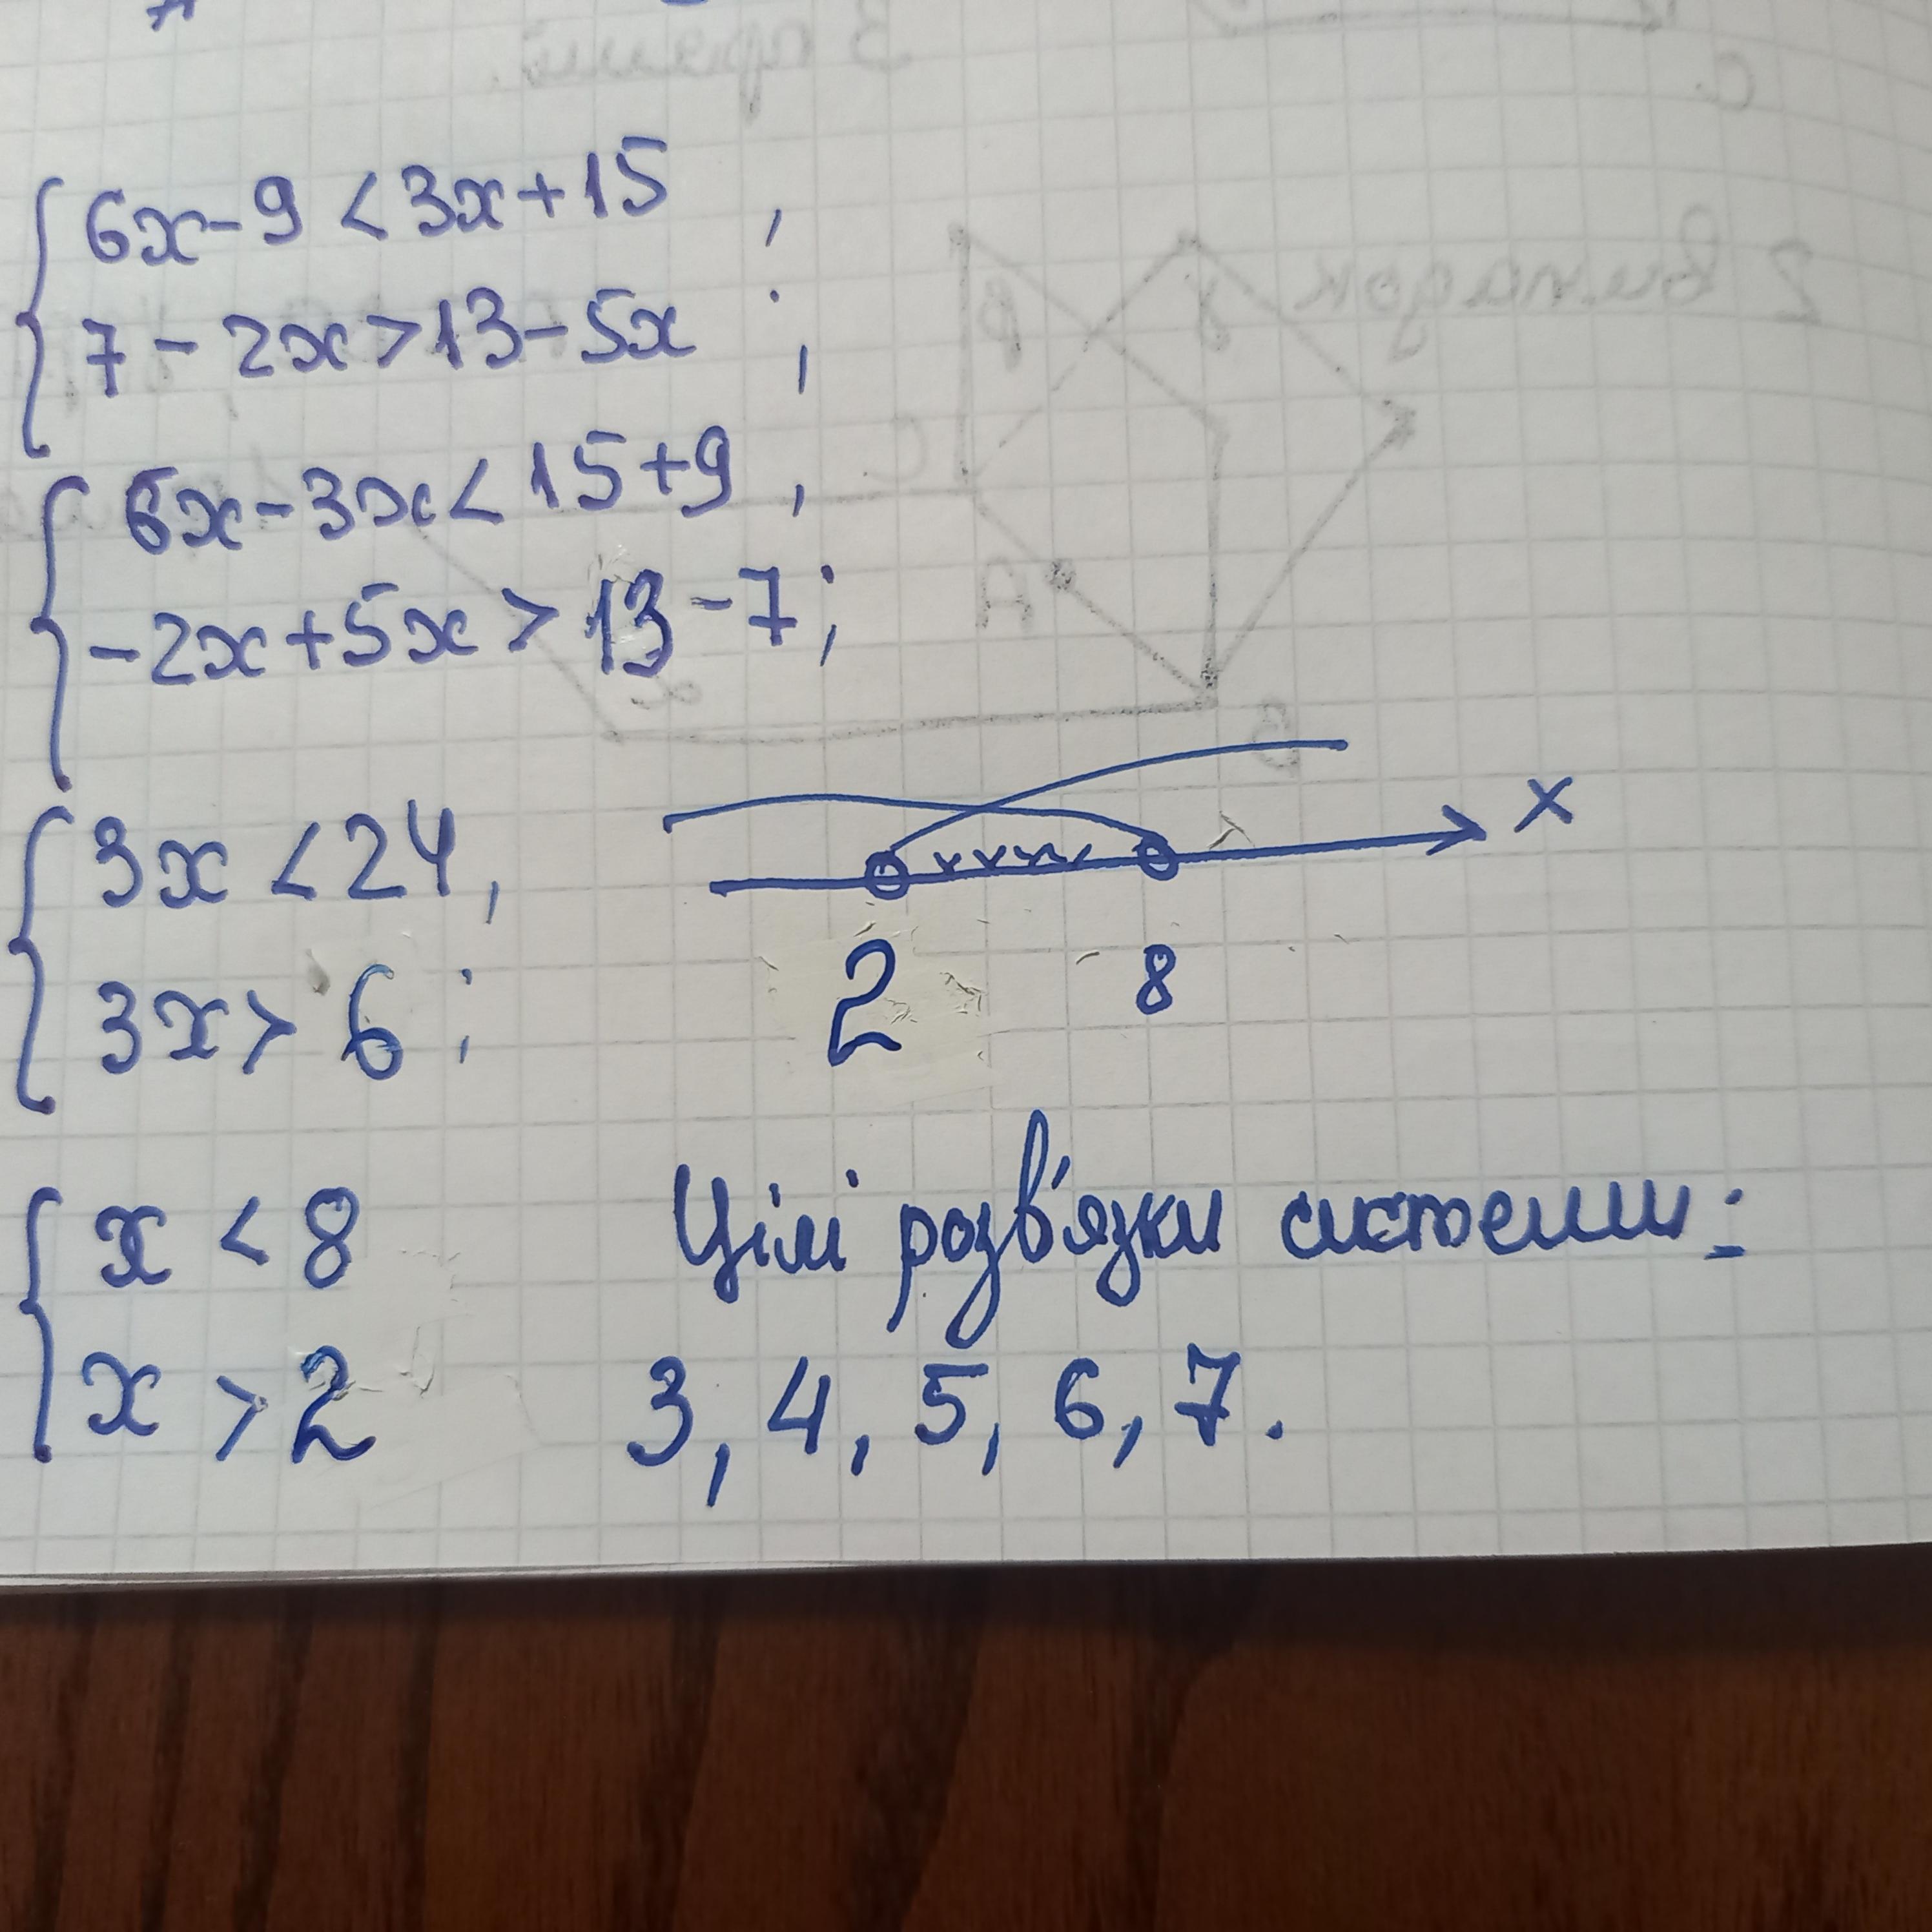 6x-9<3x+15 ,
7-2x>13-5x ;
6x-3x<15+9 ,
-2x+5x>13-7;
3x<24,
3x>6;
x
2 8
x<8
x>2
Цілі розв'язки системи:
3, 4, 5, 6, 7.